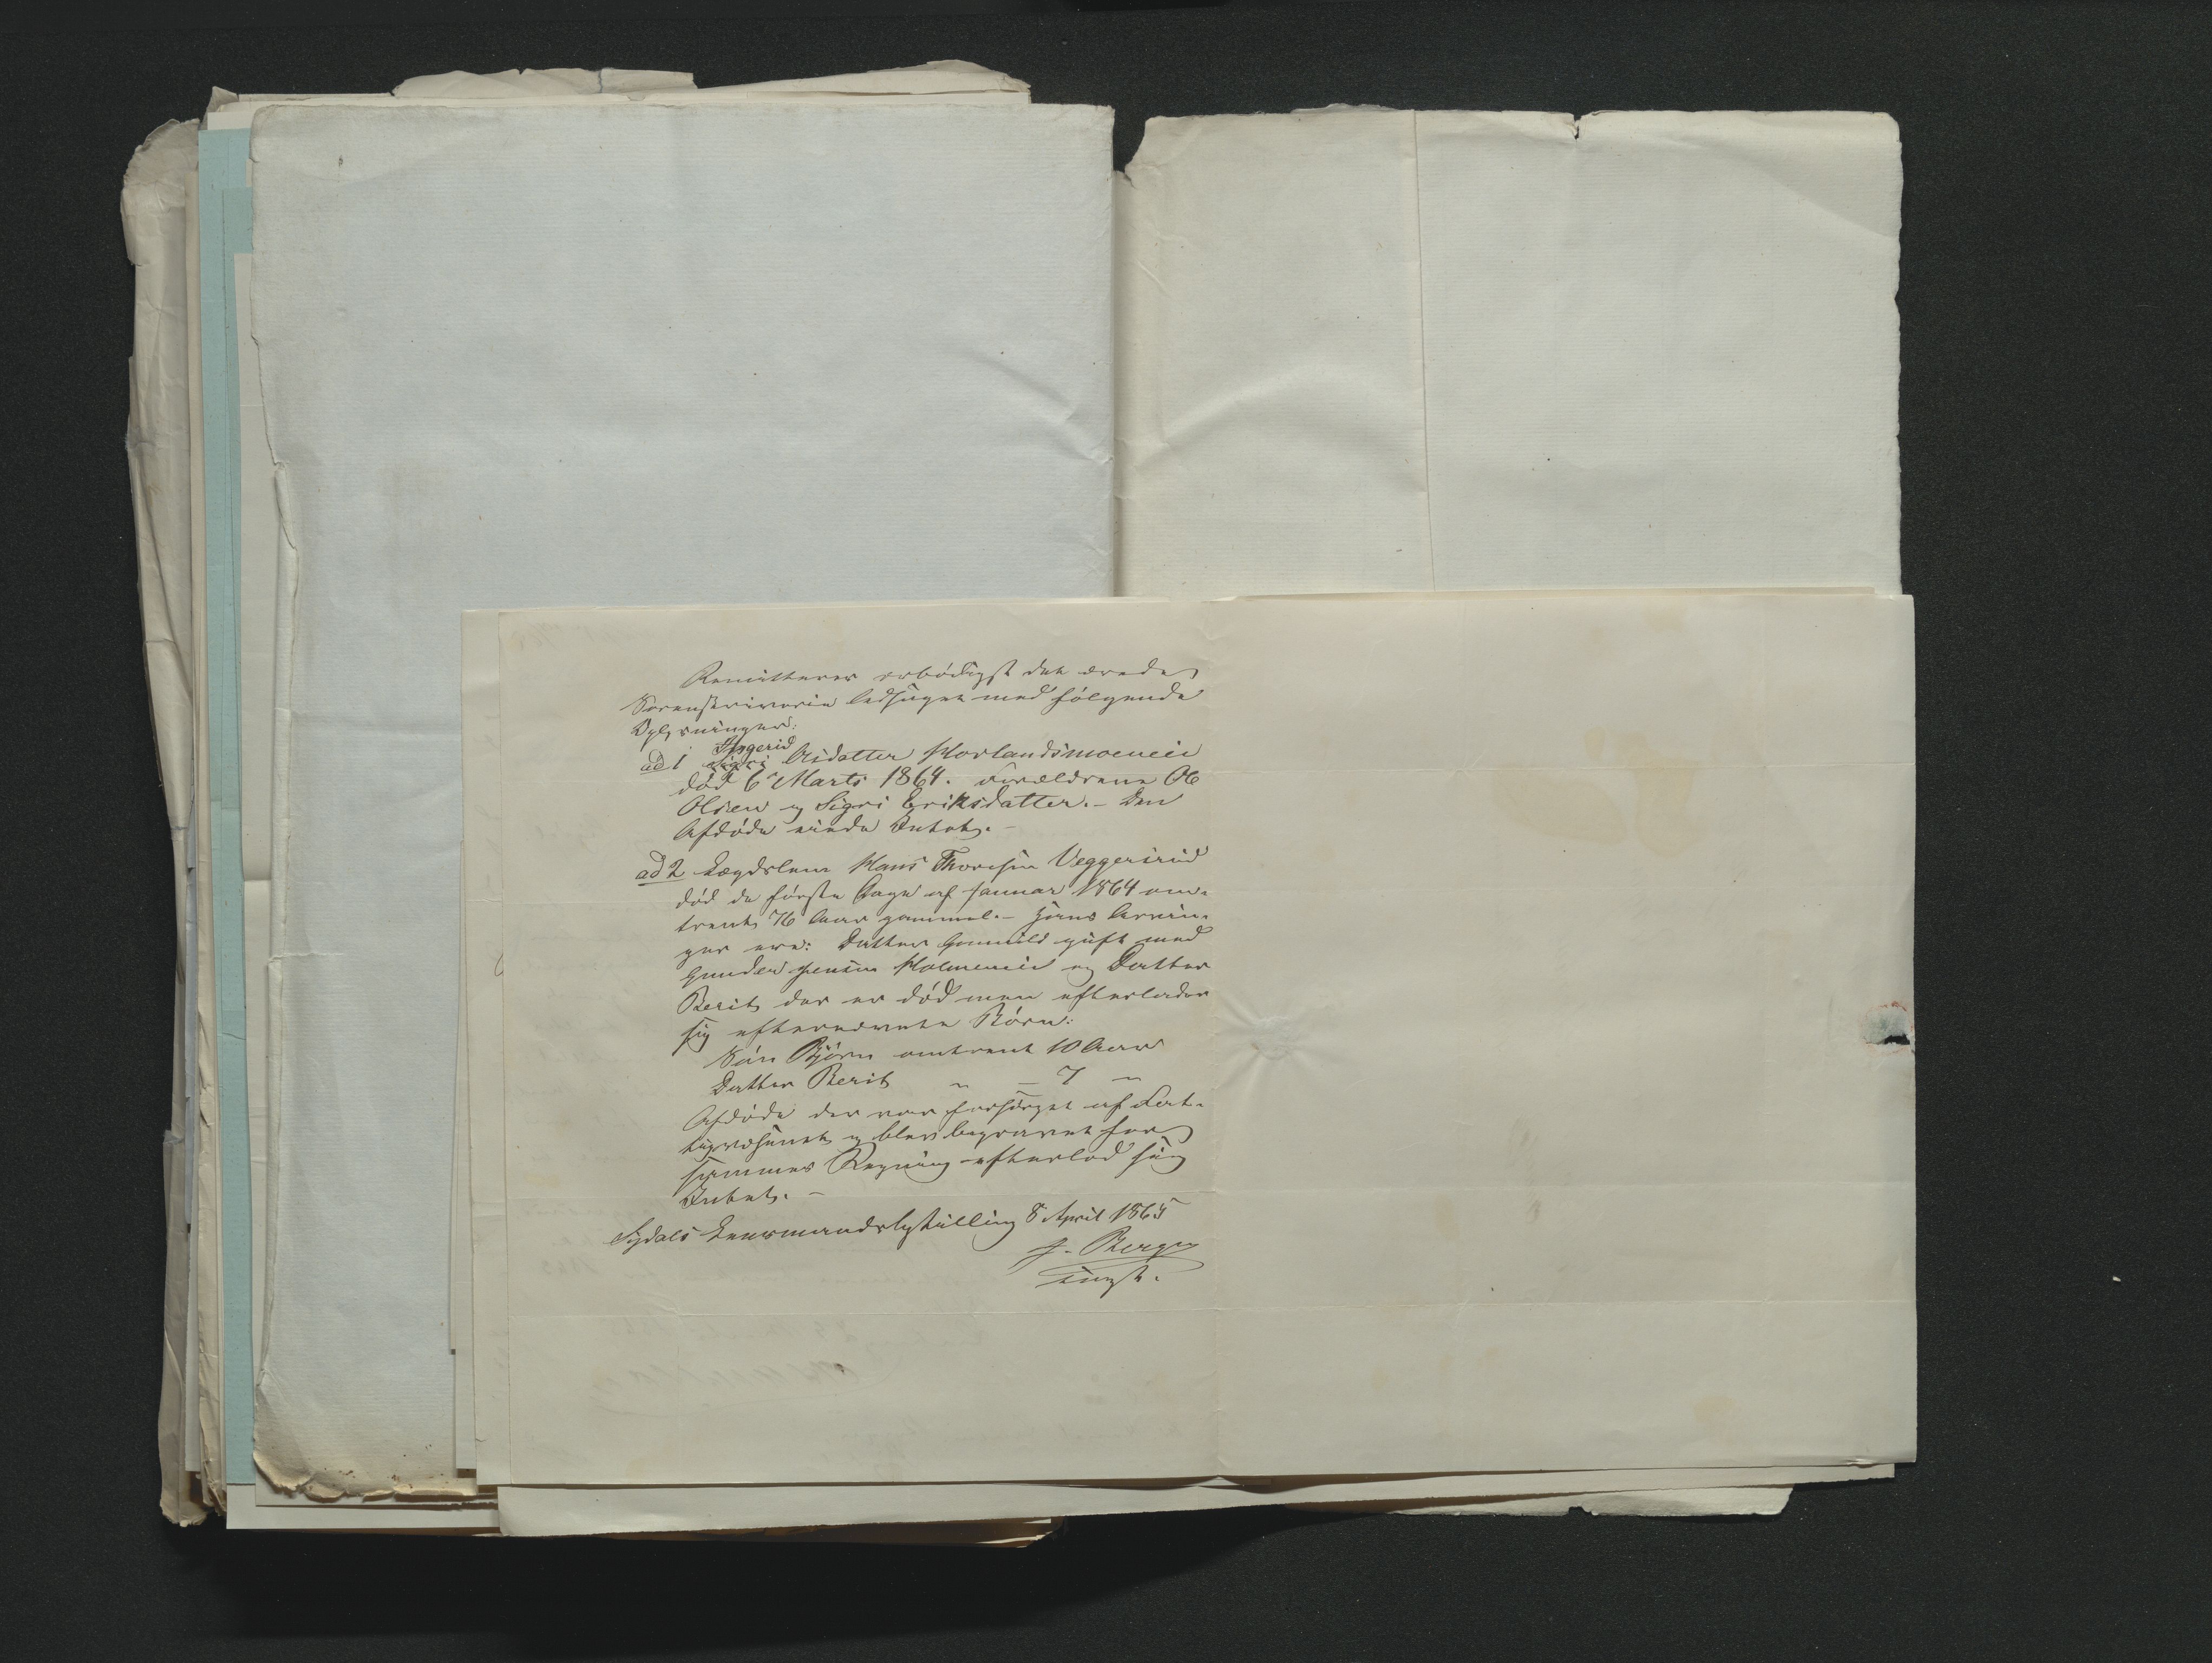 Remitteres ærbødigst det ærede
Sorenskriverie ledsaget med følgende
Oplysninger:
ad 1 Ingerid Olsdatter Horlandsmoeneie
død 6 Marts 1864. Forældrene Ole
Olsen og Sigri Eriksdatter. – Den
Afdøde eiede Intet. –
ad 2 Lægdslem Hans Thoresen Veggersrud
død de første Dage af Januar 1864 om-
trent 76 Aar gammel. – Hans Arvin-
ger ere: Datter Gunnild gift med
Gunder Jensen Holmeneie og Datter
Berit der er død men efterlader
sig efternævnte Børn:
Søn Bjørn omtrent 10 Aar
Datter Berit " – 7 "
Afdøde der var forsørget af Fat-
tigvæsenet og blev begravet for
sammes Regning efterlod sig
Intet. –
Sigdals Lensmandsbestilling 8 April 1865
J. Berger